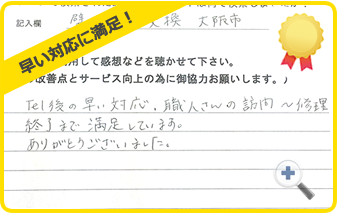 早い対応に満足！
記入欄
交換 大阪市
用して感想などを聴かせて下さい。
改善点とサービス向上の為に御協力お願いします。）
Tel後の早い対応、職人さんの訪問〜修理
終了まで満足しています。
ありがとうございました。